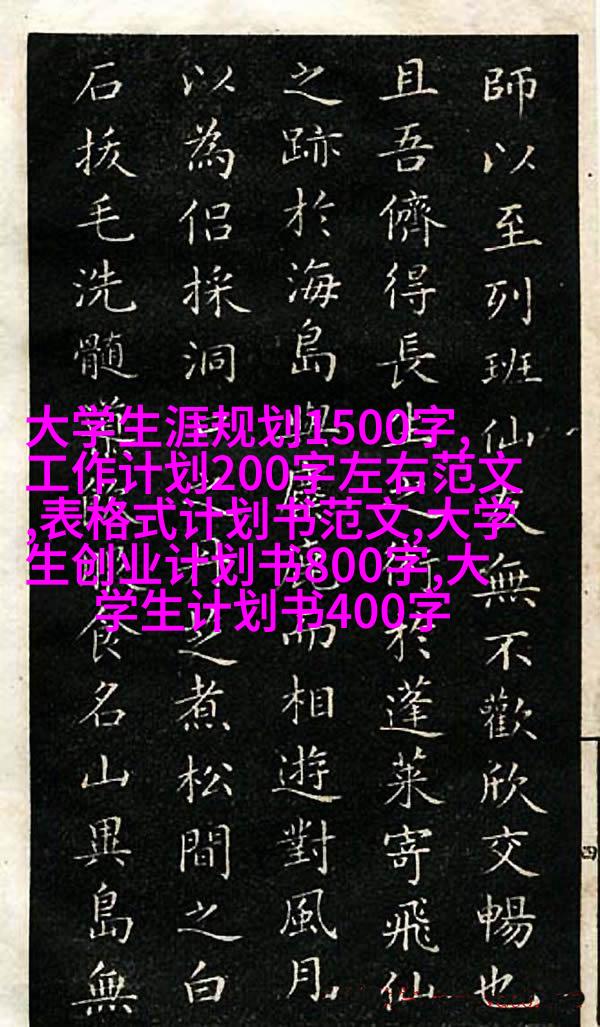 大学生涯规划1500字,
工作计划200字左右范文
,表格式计划书范文,大学
生创业计划书800字,大
学生计划书400字
師以至列班仙友無不歡欣交暢也
且吾儕得長生之術於蓬萊寄飛仙
之跡於海島與麋鹿而相遊對風月
以為侶採洞之煮松間之白
石拔毛洗髓食名山異島無
四